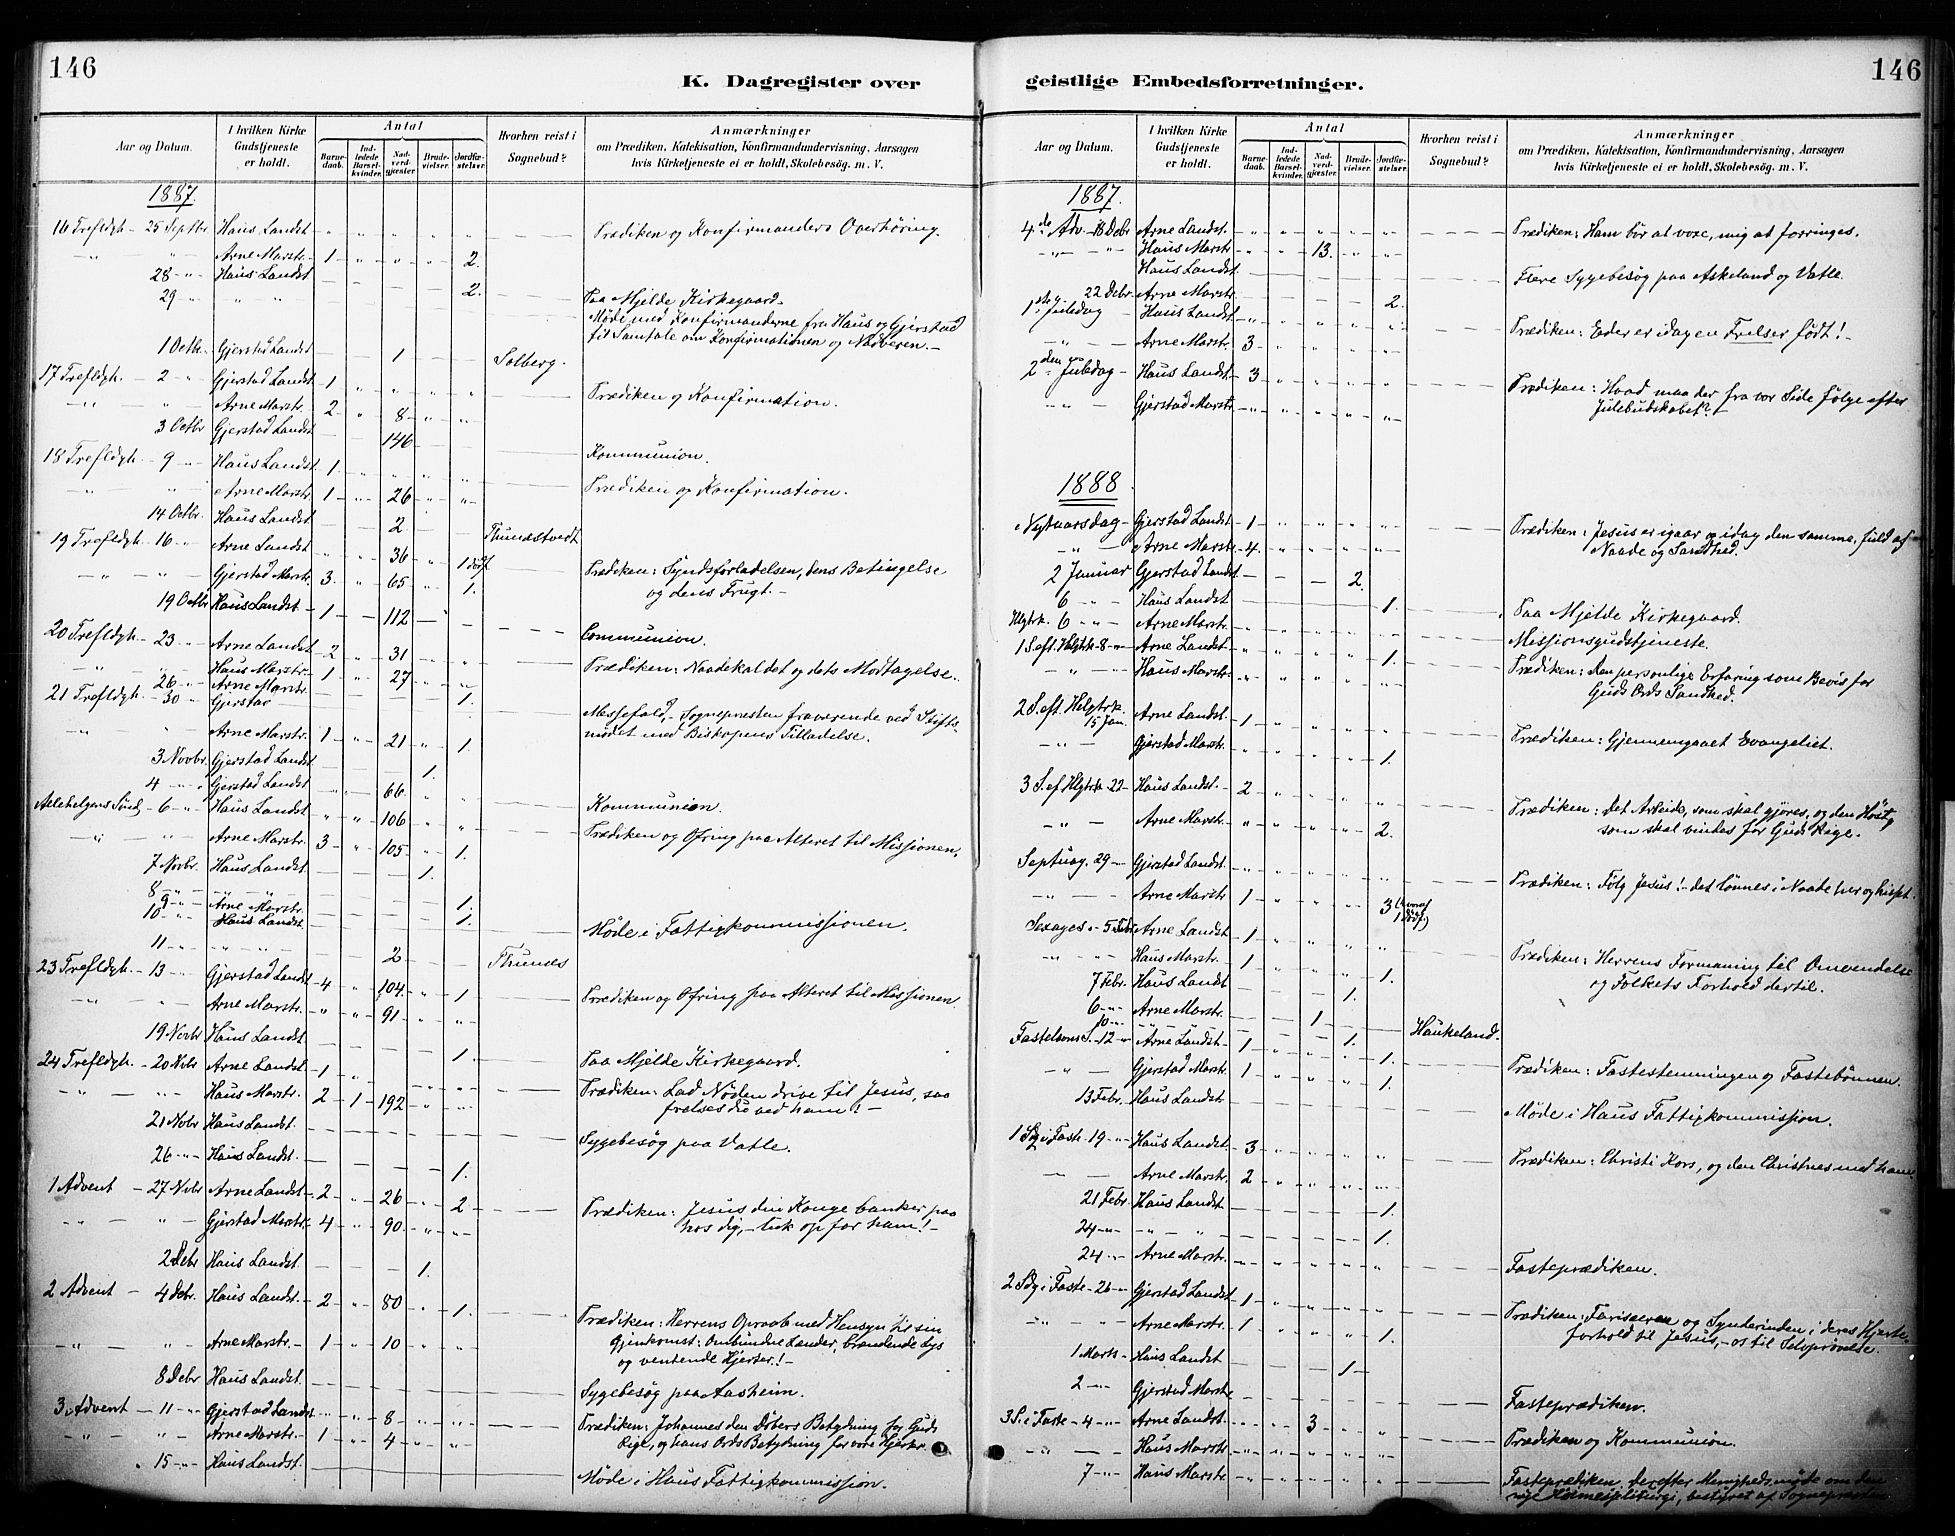 146
K. Dagregister over
Aar og Datum.
I hvilken Kirke Gudstjeneste er holdt.
Antal
Barnedaab.
Indledede Barselkvinder.
Nadverdgjæster
Brudevielser.
Jordfæstelser.
Hvorhen reist i Sognebud?
Anmærkninger
om Prædiken, Katekisation, Konfirmandundervisning, Aarsagen
hvis Kirketjeneste ei er holdt, Skolebesøg. m. V.
1887.
16 Trefldgh. - 25 Septbr. Haus Landst. " " " " " Prædiken og Konfirmanders Overhøring.
" " Arne Marstr. - 1 - " " " 2.
28 - " - Haus Landst 2. Paa Mjelde Kirkegaard.
29 " " " Møde med Konfirmanderne fra Haus og Gjerstad
til Samtale om Konfirmationen og Nadveren. -
1 Octbr. Gjerstad Landst 1 Solberg.
17 Trefldgh. - 2 - " Gjerstad Landst - 1 - " " " " Prædiken og Konfirmation.
" " Arne Marstr. - 2 - " 8 - " "
3 Octbr Gjerstad Landst 146 Kommunion.
18 Trefldgh. - 9 - " Haus Landst. 1. " " " " Prædiken og Konfirmation.
" " Arne Marstr. 1 - " 26 - " "
14 Octbr. Haus Landst. 2 Thunestvedt
19 Trefldgh. - 16 - " Arne Landst " " 36 " 1 Prædiken: Syndsforladelsen, dens Betingelse
og dens Frugt. -
" " Gjerstad Marstr. 3. " 65 " 1.
19 Octbr Haus Landst. - 1 - 112 Communion.
20 Trefldgh. - 23 - " Arne Landst - 2 - " 31 " " Prædiken: Naadekaldet og dets Modtagelse.
" " Haus Marstr. - 1 - " 27 " "
26 - " Arne Marstr. 1.
21 Trefldgh. - 30 - " Gjerstad Messefald, - Sognepresten fraværende ved Stifts-
mødet med Biskopens Tilladelse.
" " Arne Marstr. - 1 - " 21 " 1.
3 Novbr. Gjerstad Landst 1.
4 " Gjerstad Landst " " 66 " " Kommunion.
Allehelgens Sønd - 6 - " Haus Landst. " " 106 " " Prædiken og Ofring paa Alteret til Missionen.
" " Arne Marstr. - 3 - " 105 " 1.
7 Novbr. Haus Landst 1.
8 - " - " - " -
9 - " Arne Marstr. 1.
10 - " Haus Landst 1. Møde i Fattigkommissionen.
11 " " 2 Thunes
23 Trefldgh. - 13 - " Gjerstad Landst - 4 - " 104 " 1. Prædiken og Ofring paa Alteret til Missionen
" " Arne Marstr. " " 91 " "
19 Novbr Haus Landst 1. Paa Mjelde Kirkegaard.
24 Trefldgh. - 20 Novbr Arne Landst - 1 - " Prædiken: Lad Nøden drive til Jesus, saa
frelses du ved ham! -
" " Haus Marstr. - 2 - 1 - 192 " "
21 Novbr Haus Landst. Sygebesøg paa Vatle.
26 - " Haus Landst. 1.
1 Advent - 27 Novbr Arne Landst - 2 - " 26 " 2 Prædiken: Jesus din Konge banker paa
hos dig, - luk op for ham! -
" " Gjerstad Marstr. - 4 - " 90 " "
2 Debr Haus Landst 1.
2 Advent - 4 Debr. Haus Landst. - 2 - " 80 " 1. Prædiken: Herrens Opraab med Hensyn til sin
Gjenkomst: Ombundne Lænder, brændende Lys
og ventende Hjerter! -
" " Arne Marstr. - 1 - " 10 " "
8 Debr Haus Landst. Sygebesøg paa Aasheim.
3 Advent - 11 - " Gjerstad Landst " " 8 " " Prædiken: Johannes den Døbers Betydning for Guds
Rige, og hans Ords Betydning for vore Hjerter.
" " Arne Marstr. - 1 - " 4 " "
15 - " Haus Landst. Møde i Haus Fattigkommission.
146
geistlige Embedsforretninger.
Aar og Datum.
I hvilken Kirke Gudstjeneste er holdt.
Antal
Barnedaab.
Indledede Barselkvinder.
Nadverdgjæster
Brudevielser.
Jordfæstelser.
Hvorhen reist i Sognebud?
Anmærkninger
om Prædiken, Katekisation, Konfirmandundervisning, Aarsagen
hvis Kirketjeneste ei er holdt, Skolebesøg. m. V.
1887.
4de Adv. 18 Debr Arne Landst. " " " " " Prædiken: Ham bør at voxe, mig at forringes.
" " Haus Marstr " " 13. " "
Haus Landst Flere Sygebesøg paa Askeland og Vatle.
22 Debr. Arne Marstr. 2.
1ste Juledag - Haus Landst " " " " " Prædiken: Eder er idag en Frelser født! -
" Arne Marstr. 3 " " " "
2den Juledag - Haus Landst - 3 - " " " " Prædiken: Hvad maa der fra vor Side følge efter
Julebudskabet? -
" Gjerstad Marstr. " " " " "
1888.
Nytaarsdag - Gjerstad Landst - 1 - " " " " Prædiken: Jesus er igaar og idag den samme, fuld af
Naade og Sandhed.
" Arne Marstr. - 4. " " " "
2 Januar Gjerstad Landst 2.
6 - " Haus Landst 1. Paa Mjelde Kirkegaard.
Hlgtrk. 6 " Arne Marstr. " " " " " Missionsgudstjeneste.
1 S. eft. Helgtrk - 8 - " Arne Landst " " " " 1. Prædiken: Den personlige Erfaring som Bevis for
Guds Ords Sandhed.
" Haus Marstr. " " " " "
2 S. eft. Helgtrk. 15 Jan. Arne Landst - 1 - " " " " Prædiken: Gjennemgaaet Evangeliet.
" Gjerstad Marstr. " " " " 1.
3 S. ef. Hlgtrk. 22 - Haus Landst. - 2 " " " " Prædiken: Det Arbeide, som skal gjøres, og den Høst,
som skal vindes for Guds Rige.
" Arne Marstr. " " " " 2.
Septuag. 29 - Gjerstad Landst. " " " " " Prædiken: Følg Jesus! - det lønnes i Naade her og hisset.
" Arne Marstr. 1 " " " 3
Sexages. - 5 Febr Arne Landst - 1 " " " " Prædiken: Herrens Formaning til Omvendelse
og Folkets Forhold dertil.
" Haus Marstr. 1 " " " 1.
7 Febr. Haus Landst 1.
6 - " Arne Marstr.
10 - " " 1 Haukeland.
Fastelavns S. - 12 - " Arne Landst - 1 " " 1. 1. Prædiken: Fastestemningen og Fastebønnen.
" Gjerstad Marstr. 1 " " " 1.
13 Febr. Haus Landst Møde i Haus Fattigkommission.
1 Sdg i Fast - 19 - " Haus Landst. - 3 " " " " Prædiken: Christi Kors, og den Christnes med ham.
" Arne Marstr. - 2 " " " "
21 Febr. Haus Landst 1.
24 - " " 1.
24 - " Arne Marstr. " " " " " Fasteprædiken.
2 Sdg i Faste - 26 - " Gjerstad Landst - 1 - " " " " Prædiken: Farisæeren og Synderinden i deres Hjerte-
forhold til Jesus, - os til Selvprøvelse.
" Arne Marstr. 1 " " " 1.
1 Marts - Haus Landst 1 -
2 - " Gjerstad Marstr Fasteprædiken.
3 S. i Faste - 4 - " Arne Landst. " " 3 " " Prædiken og Kommunion.
" Haus Marstr. " " " " "
7 - " Haus Marstr. " " " " " Fasteprædiken, derefter Menighedsmøde om den
nye , bestyret af Sognepresten